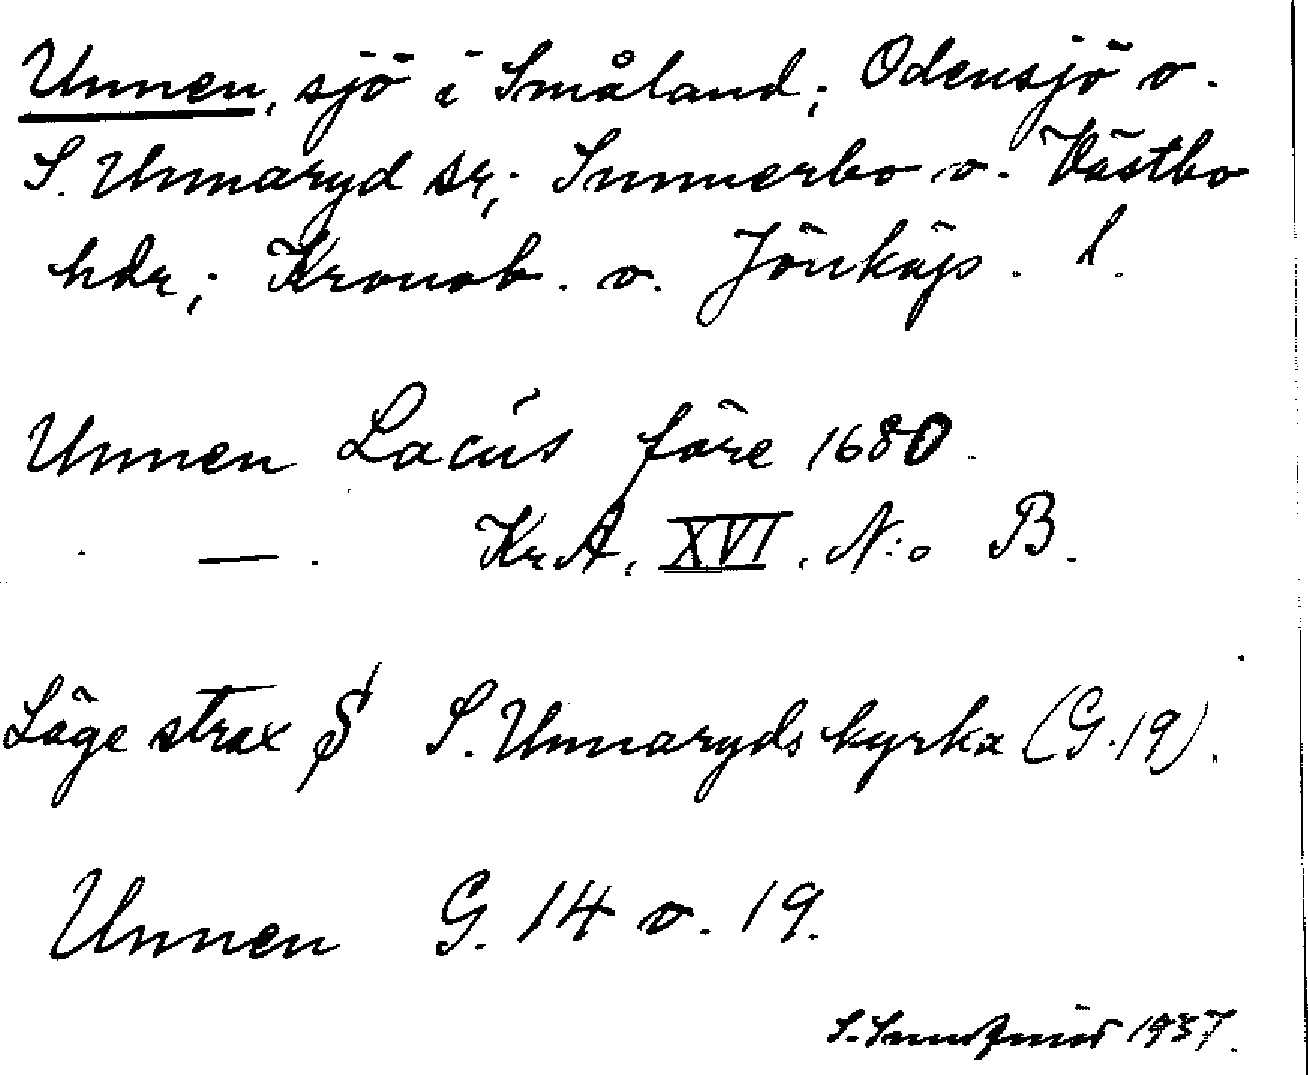 Unnen, sjö i Småland; Odensjö o.
S. Unnaryd sr; Sunnerbo o. Västbo
hdr; Kronob. o. Jönköp. l.
Unnen Lacus före 1680.
— . KrA, XVI. N:o B.
Läge strax S S. Unnaryds kyrka (G.19).
Unnen G. 14 o. 19.
S. 1937.